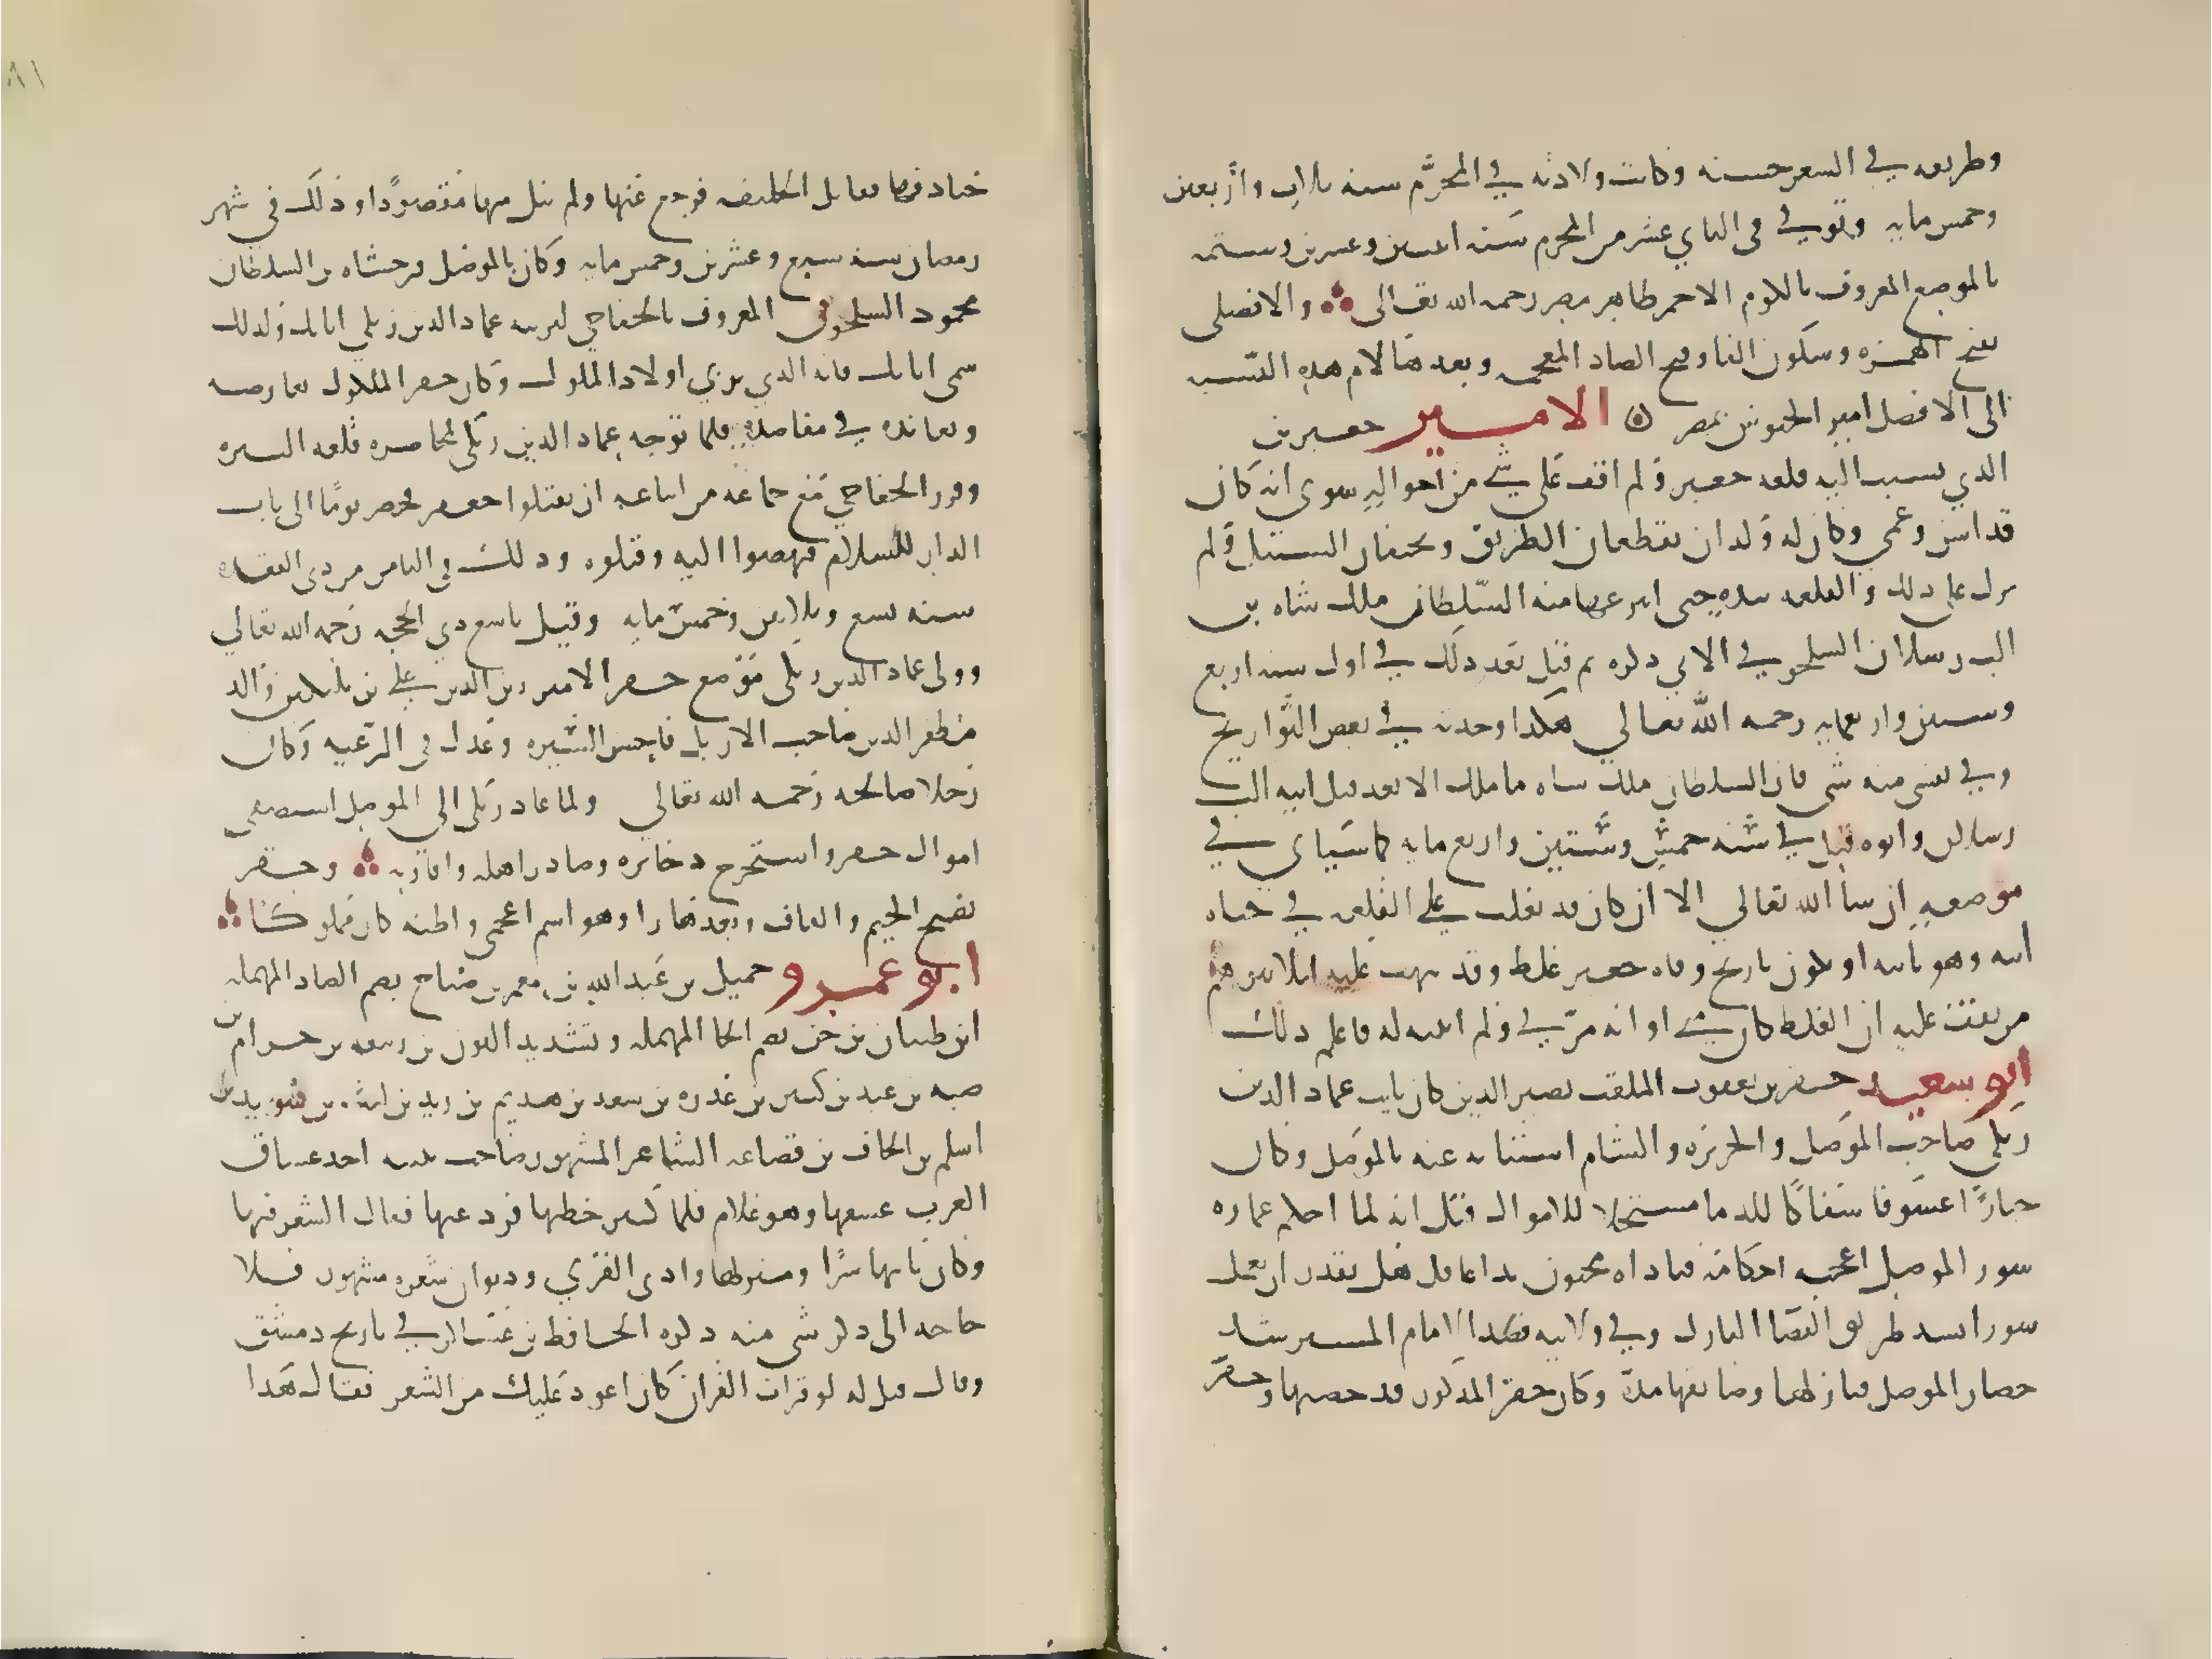 وطريقه في الشعر حسنه وكانت ولادته في المحرّم سنه ثلاث واربعين
وخمس مايه وتوفي في الثاني عشر من المحرم سنه اثنين وعشرين وستمه
بالموضع المعروف بالكوم الاحمر ظاهر مصر رحمه الله تعالى والافضلى
بفتح الهمزه وسكون الفا وفتح الضاد المعجمه وبعدها لام هذه النسبه
الى الافضل امير الجيوش بمصر الامير جعبر بن
الذي ينسب اليه قلعه جعبر ولم اقف على شي من احواله سوى انه كان
قد اسن وعمي وكان له ولدان يقطعان الطريق ويخيفان السبيل ولم
يزل على ذلك والقلعه بيده حتى انتزعها منه السلطان ملك شاه بن
الب رسلان السلجوقي الاتي ذكره ثم قتل بعد ذلك في اول سنه اربع
وستين واربعمايه رحمه الله تعالي هكذا وجدته في بعض التواريخ
وفي نفسى منه شى فان السلطان ملك شاه ما ملك الا بعد قتل ابيه الب
رسلان وابوه قتل في سنه خمس وستين واربع مايه كما سياتى في
موضعه ان شا الله تعالي الا ان كان قد تغلب على القلعه في حياه
ابيه وهو نايبه او يكون تاريخ وفاه جعبر غلط وقد نبهت عليه ليلا يتوهم
من يقف عليه ان الغلط كان مني او انه مرّ بي ولم انتبه له فاعلم ذلك
ابو سعيد جقر بن يعقوب الملقب نصير الدين كان نايب عماد الدين
زنكي صاحب الموصل والجزيره والشام استنابه عنه بالموصل وكان
جبارًا عسوفا سفاكًا للدما مستحلا للاموال وقيل انه لما احكم عماره
سور الموصل اعجبه احكامه فناداه مجنون ندا عاقل هل تقدر ان تعمل
سورا يسد طريق القضا النازل وفي ولايته قصد الامام المسترشد
حصار الموصل فنازلها وضايقها مدة وكان جقر المذكور قد حصنها وحفر
خنادقها فقاتل الخليفه فرجع عنها ولم ينل منها مقصودًا وذلك فى شهر
رمضان سنه سبع وعشرين وخمس مايه وكان بالموصل فرخشاه بن السلطان
محمود السلجوقى المعروف بالخفاجي لتربيه عماد الدين زنكي اتابك ولذلك
سمى اتابك فانه الذي يربي اولاد الملوك وكان جقر المذكور يعارضه
ويعانده في مقاصده فلما توجه عماد الدين زنكى لمحاصره قلعه البيره
وقرر الخفاجي مع جماعه من اتباعه ان يقتلوا جقر فحضر يومًا الى باب
الدار للسلام فنهضوا اليه وقتلوه وذلك في الثامن من ذى القعده
سنه تسع وثلاثين وخمس مايه وقيل تاسع ذي الحجه رحمه الله تعالي
وولى عماد الدين زنكى موضع جقر الامير زين الدين علي بن بكتكين والد
مظفر الدين صاحب الاربل فاحسن السيره وعدل في الرعيه وكان
رجلا صالحه رحمه الله تعالي ولما عاد زنكى الى الموصل استصفى
اموال جقر واستخرج ذخايره وصادر اهله واقاربه وجقر
بفتح الجيم والقاف وبعدها را وهو اسم اعجمى واظنه كان مملوكا
ابو عمرو جميل بن عبد الله بن معمر بن صباح بضم الصاد المهمله
ابن ظبيان بن حن بضم الحا المهمله وتشديد النون بن ربيعه بن حرام بن
ضبه بن عبد بن كثير بن عذره بن سعد بن هذيم بن زيد بن ليث بن سويد بن
اسلم بن الحاف بن قضاعه الشاعر المشهور صاحب بثينه احد عشاق
العرب عشقها وهو غلام فلما كبر خطبها فرد عنها فقال الشعر فيها
وكان ياتيها سرًا ومنزلها وادى القرى وديوان شعره مشهور فلا
حاجه الى ذكر شى منه ذكره الحافظ بن عساكر في تاريخ دمشق
وقال قيل له لو قرات القران كان اعود عليك من الشعر فقال هذا